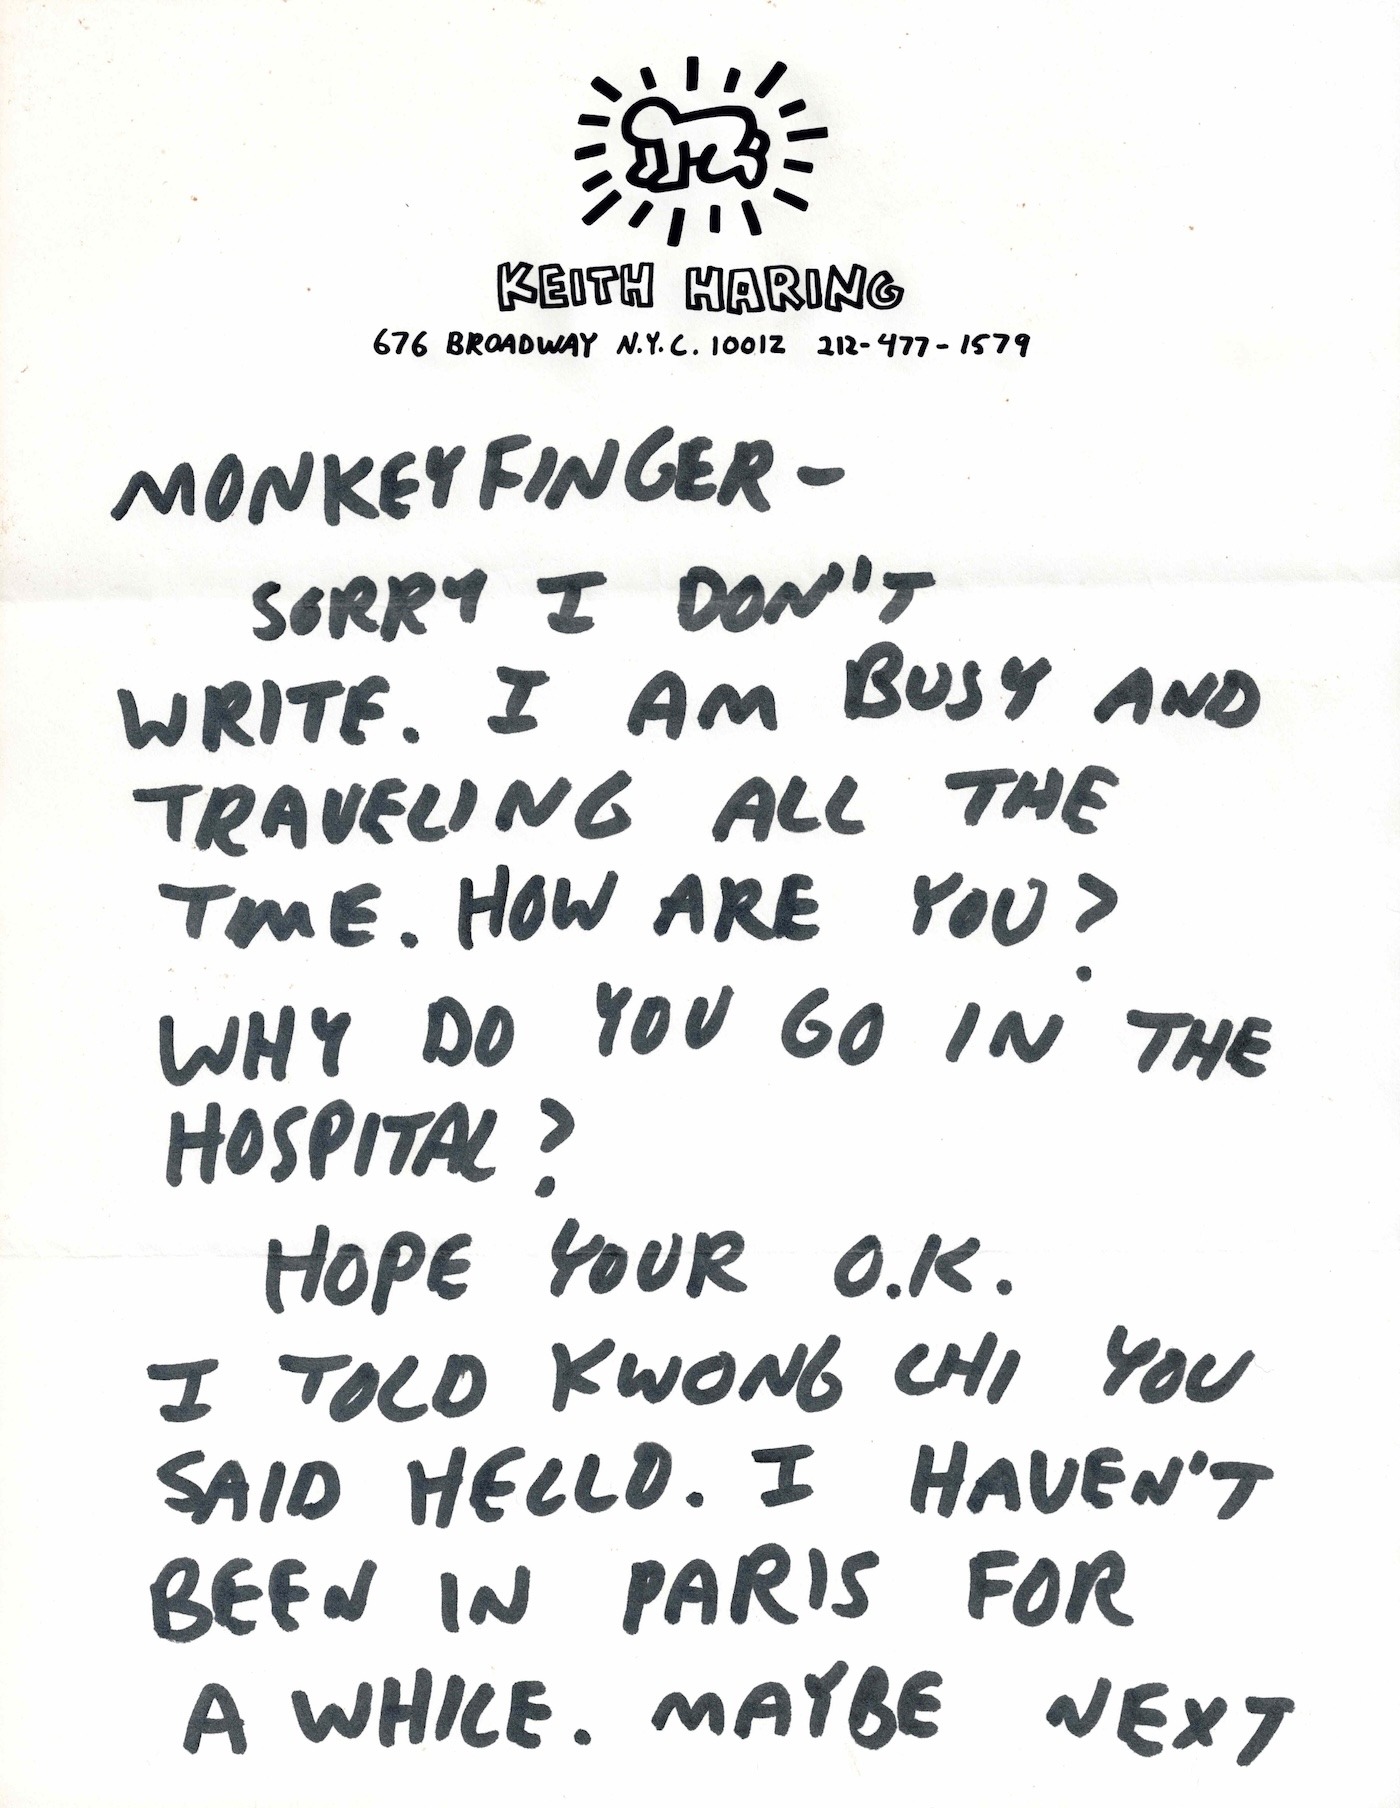 KEITH HARING
676 BROADWAY N.Y.C. 10012 212-477-1579
MONKEYFINGER –
SORRY I DON'T
WRITE. I AM BUSY AND
TRAVELING ALL THE
TIME. HOW ARE YOU?
WHY DO YOU GO IN THE
HOSPITAL?
HOPE YOUR O.K.
I TOLD KWONG CHI YOU
SAID HELLO. I HAVEN'T
BEEN IN PARIS FOR
A WHILE. MAYBE NEXT